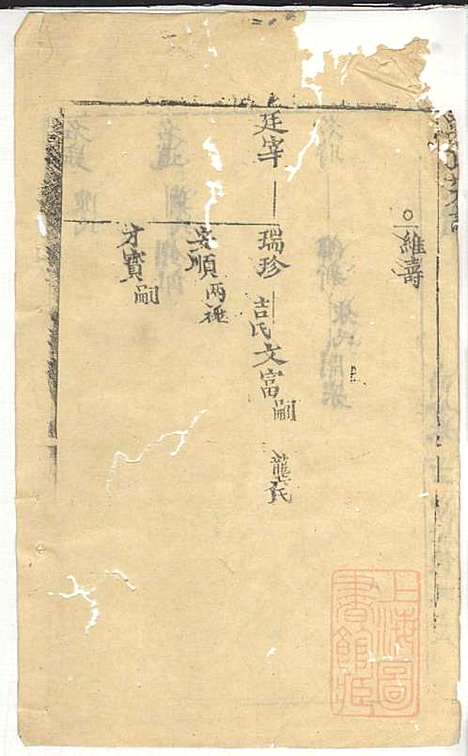 維壽
廷宰
瑞珍 吉氏 文富嗣 龔氏
安順 兩祧
才寳嗣
上海圖書館藏